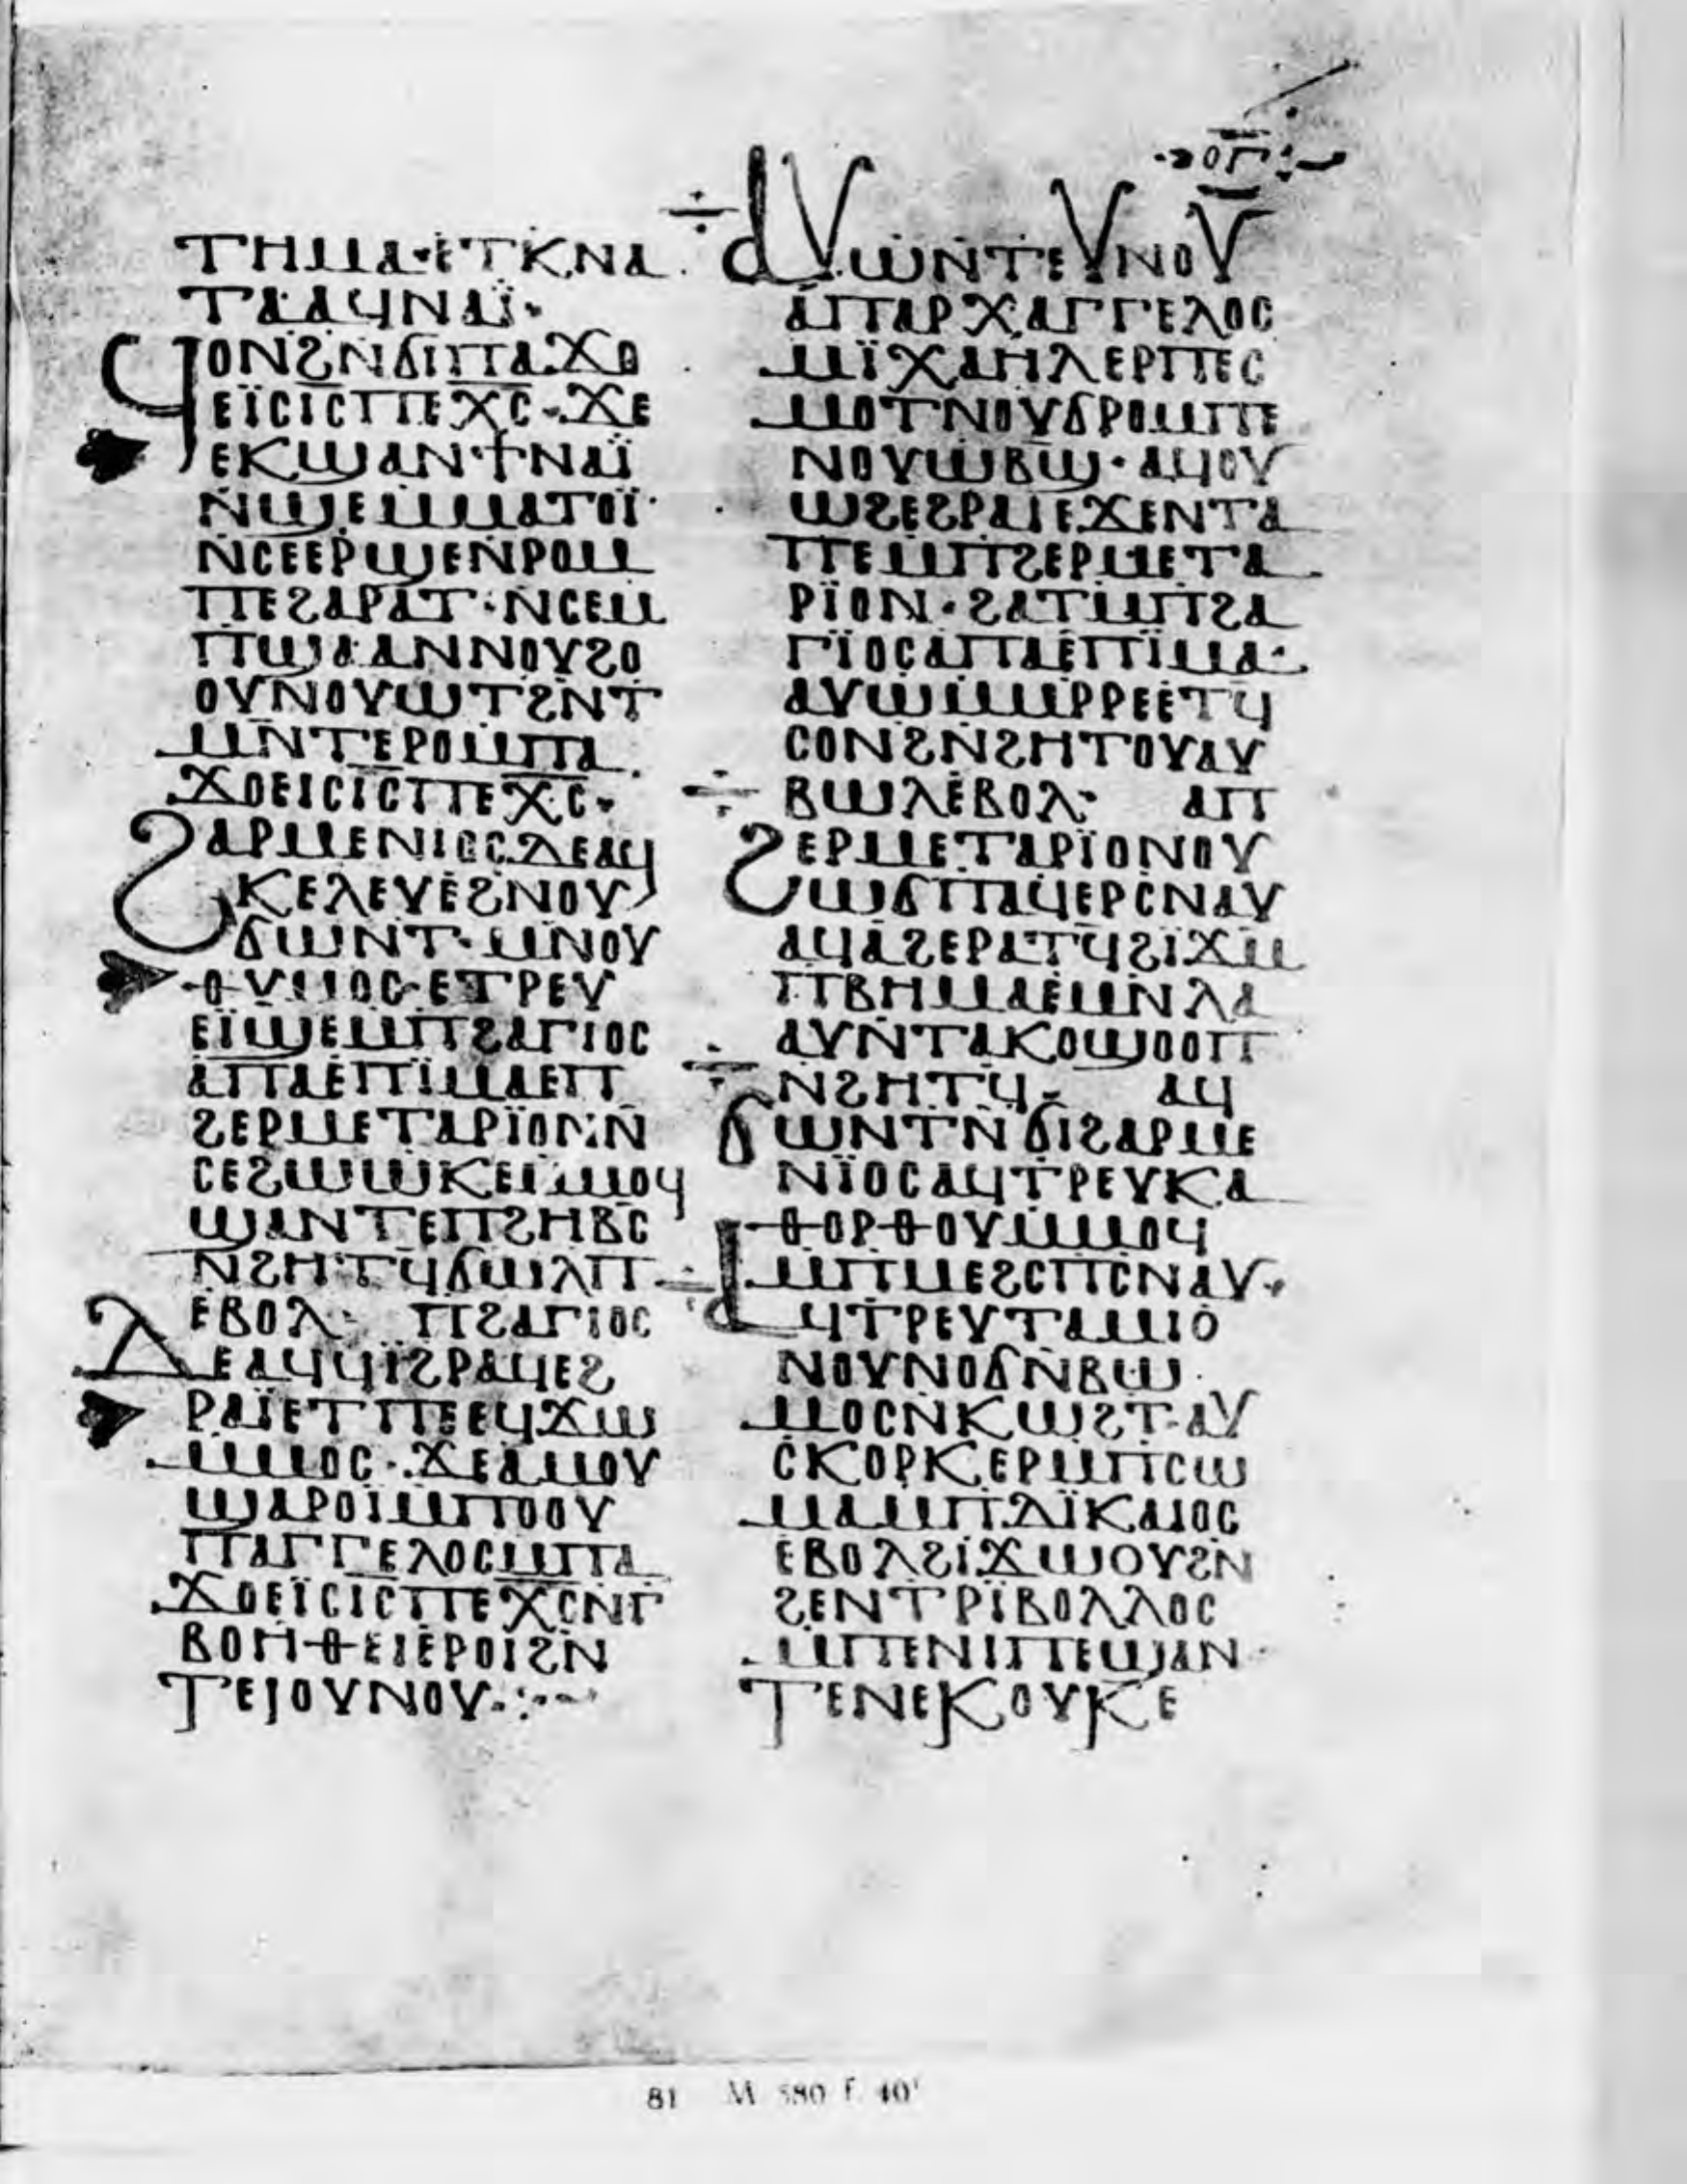 ⲟⲅ
ⲧⲏⲙⲁ·ⲉⲧⲕⲛⲁ
ⲧⲁⲁϥⲛⲁⲓ̈·
ϥⲟⲛϩ̅ⲛ̅ϭⲓⲡⲁϫⲟ
ⲉⲓ̈ⲥⲓ̅ⲥ̅ⲡⲉⲭ̅ⲥ̅·ϫⲉ
ⲉⲕϣⲁⲛϯⲛⲁⲓ̈
ⲛ̇ϣⲉⲙ̇ⲙⲁⲧⲟⲓ̈·
ⲛ̇ⲥⲉⲉⲣϣⲉⲛ̇ⲣⲟⲙ
ⲡⲉϩⲁⲣⲁⲧ·ⲛ̇ⲥⲉⲙ
ⲡϣⲁⲁⲛⲛⲟⲩϩⲟ
ⲟⲩⲛⲟⲩⲱⲧϩⲛ̇ⲧ
ⲙⲛ̇ⲧⲉⲣⲟⲙ̇ⲡⲁ
ϫⲟⲉⲓⲥⲓ̅ⲥ̅ⲡⲉⲭ̅ⲥ̅·
ϩⲁⲣⲙⲉⲛⲓⲟⲥⲇⲉⲁϥ
ⲕⲉⲗⲉⲩⲉϩ̇ⲛⲟⲩ
ϭⲱⲛⲧ·ⲙⲛ̇ⲟⲩ
ⲑⲩⲙⲟⲥ·ⲉⲧⲣⲉⲩ
ⲉⲓ̈ϣⲉⲙ̇ⲡϩⲁⲅⲓⲟⲥ
ⲁⲡⲁⲉ̇ⲡⲓ̈ⲙⲁⲉⲡ
ϩⲉⲣⲙⲉⲧⲁⲣⲓ̈ⲟⲛ·ⲛ̇
ⲥⲉϩⲱⲱⲕⲉⲙ̇ⲙⲟϥ
ϣⲁⲛⲧⲉⲡϩⲏⲃⲥ
ⲛ̇ϩⲏⲧϥϭⲱⲗⲡ
ⲉⲃⲟⲗ· ⲡϩⲁⲅⲓⲟⲥ
ⲇⲉⲁϥϥⲓ̈ϩⲣⲁϥⲉϩ
ⲣⲁⲓ̈ⲉⲧⲡⲉⲉϥϫⲱ
ⲙ̇ⲙⲟⲥ·ϫⲉⲁⲙⲟⲩ
ϣⲁⲣⲟⲓⲙ̇ⲡⲟⲟⲩ
ⲡⲁⲅⲅⲉⲗⲟⲥⲙ̇ⲡⲁ
ϫⲟⲉⲓ̈ⲥⲓ̅ⲥ̅ⲡⲉⲭ̅ⲥ̅ⲛⲅ̇
ⲃⲟⲏⲑⲉⲓⲉ̇ⲣⲟⲓϩⲛ̇
ⲧⲉⲓⲟⲩⲛⲟⲩ·:·~
ⲁⲩⲱⲛ̇ⲧⲉⲩⲛⲟⲩ
ⲁ̇ⲡⲁⲣⲭⲁⲅⲅⲉⲗⲟⲥ
ⲙⲓ̈ⲭⲁⲏⲗⲉⲣⲡⲉⲥ
ⲙⲟⲧⲛⲟⲩϭⲣⲟⲙⲡⲉ
ⲛⲟⲩⲱⲃϣ·ⲁϥⲟⲩ
ⲱϩⲉϩⲣⲁⲓⲉϫⲉⲛⲧⲁ
ⲡⲉⲙ̇ⲡϩⲉⲣⲙⲉⲧⲁ
ⲣⲓ̈ⲟⲛ·ϩⲁⲧⲙ̇ⲡϩⲁ
ⲅⲓ̈ⲟⲥⲁⲡⲁⲉ̇ⲡⲓ̈ⲙⲁ·
ⲁⲩⲱⲙ̇ⲙⲣⲣⲉⲉ̇ⲧϥ
ⲥⲟⲛϩⲛ̇ϩⲏⲧⲟⲩⲁⲩ
ⲃⲱⲗⲉ̇ⲃⲟⲗ· ⲁⲡ
ϩⲉⲣⲙⲉⲧⲁⲣⲓ̈ⲟⲛⲟⲩ
ⲱϭⲡⲁϥⲉⲣⲥ̇ⲛⲁⲩ
ⲁϥⲁϩⲉⲣⲁⲧϥϩⲓ̈ϫⲙ
ⲡⲃⲏⲙⲁⲉ̇ⲙⲛ̇ⲗⲁ
ⲁⲩⲛ̇ⲧⲁⲕⲟϣⲟⲟⲡ
ⲛ̇ϩⲏⲧϥ· ⲁϥ
ϭⲱⲛⲧⲛ̇ϭⲓϩⲁⲣⲙⲉ
ⲛⲓ̈ⲟⲥⲁϥⲧⲣⲉⲩⲕⲁ
ⲑⲟⲣⲑⲟⲩⲙ̇ⲙⲟϥ
ⲙ̇ⲡⲙⲉϩⲥⲡⲥⲛⲁⲩ·
ⲁϥⲧⲣⲉⲩⲧⲁⲙⲓⲟ
ⲛⲟⲩⲛⲟϭⲛ̇ⲃⲱ
ⲙⲟⲥⲛ̇ⲕⲱϩⲧ·ⲁⲩ
ⲥⲕⲟⲣⲕⲉⲣⲙ̇ⲡⲥⲱ
ⲙⲁⲙ̇ⲡⲇⲓ̈ⲕⲁⲓⲟⲥ
ⲉⲃⲟⲗϩⲓϫⲱⲟⲩϩⲛ
ϩⲉⲛⲧⲣⲓ̈ⲃⲟⲗⲗⲟⲥ
ⲙ̇ⲡⲉⲛⲓⲡⲉϣⲁⲛ
ⲧⲉⲛⲉⲕⲟⲩⲕⲉ
81 M 580 f. 40ʳ